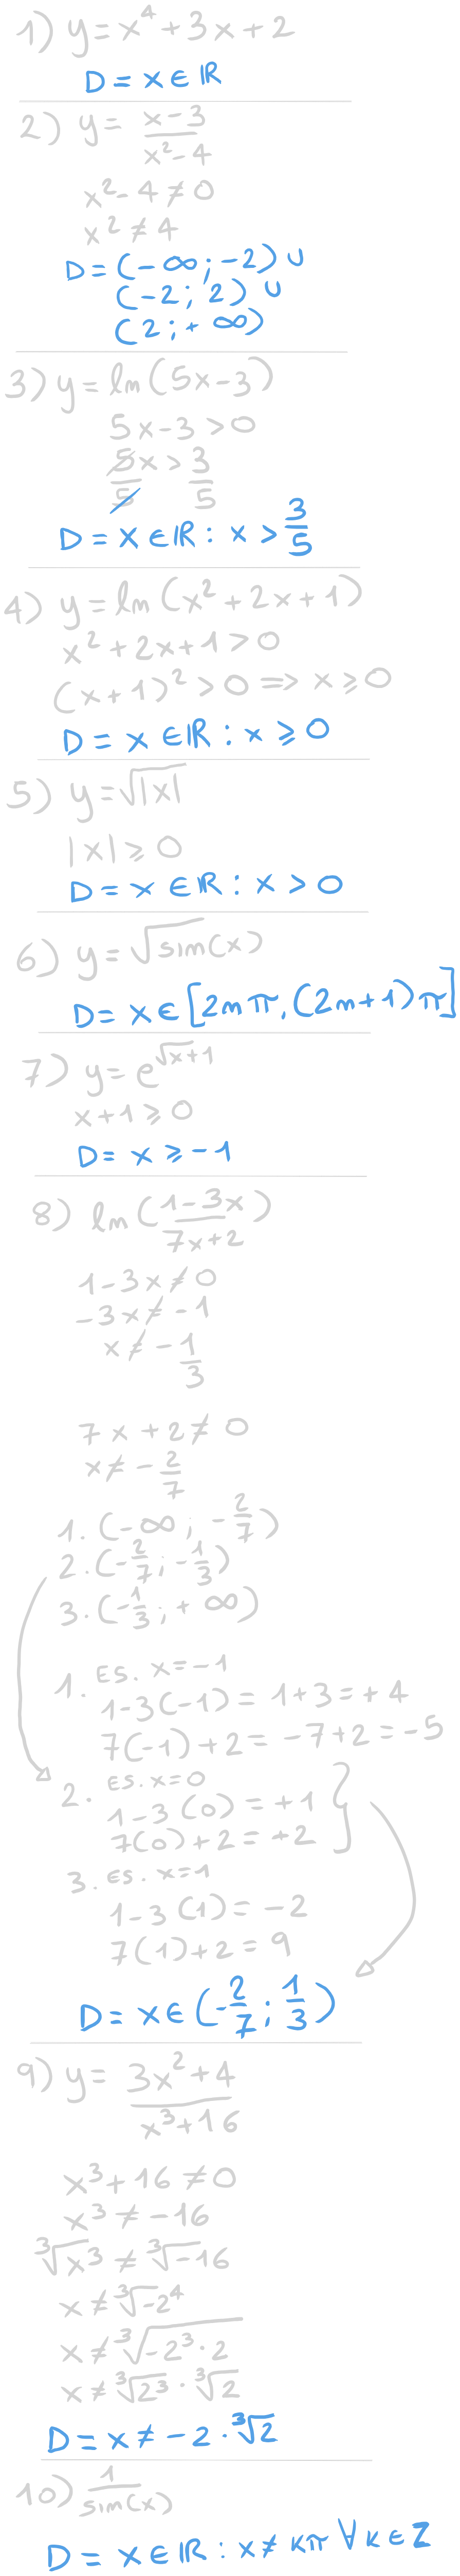 1) y = x⁴ + 3x + 2
D = x ∈ ℝ
2) y = (x-3)/(x²-4)
x² - 4 ≠ 0
x² ≠ 4
D = (-∞; -2) ∪
(-2; 2) ∪
(2; +∞)
3) y = ln(5x-3)
5x-3 > 0
5x/5 > 3/5
D = x ∈ ℝ : x > 3/5
4) y = ln(x² + 2x + 1)
x² + 2x + 1 > 0
(x+1)² > 0 => x ⩾ 0
D = x ∈ ℝ : x ⩾ 0
5) y = √|x|
|x| ⩾ 0
D = x ∈ ℝ : x > 0
6) y = √sin(x)
D = x ∈ [2nπ, (2n+1)π]
7) y = e^√(x+1)
x+1 ⩾ 0
D = x ⩾ -1
8) ln((1-3x)/(7x+2))
1-3x ≠ 0
-3x ≠ -1
x ≠ -1/3
7x + 2 ≠ 0
x ≠ -2/7
1. (-∞; -2/7)
2. (-2/7; -1/3)
3. (-1/3; +∞)
1. ES. x=-1
1-3(-1) = 1+3 = +4
7(-1)+2 = -7+2 = -5
2. ES. x=0
1-3(0) = +1
7(0)+2 = +2
3. ES. x=1
1-3(1) = -2
7(1)+2 = 9
D = x ∈ (-2/7; 1/3)
9) y = (3x²+4)/(x³+16)
x³+16 ≠ 0
x³ ≠ -16
∛x³ ≠ ∛-16
x ≠ ∛-2⁴
x ≠ ∛(-2³·2)
x ≠ ∛2³ · ∛2
D = x ≠ -2·∛2
10) 1/sin(x)
D = x ∈ ℝ : x ≠ kπ ∀ k ∈ Z